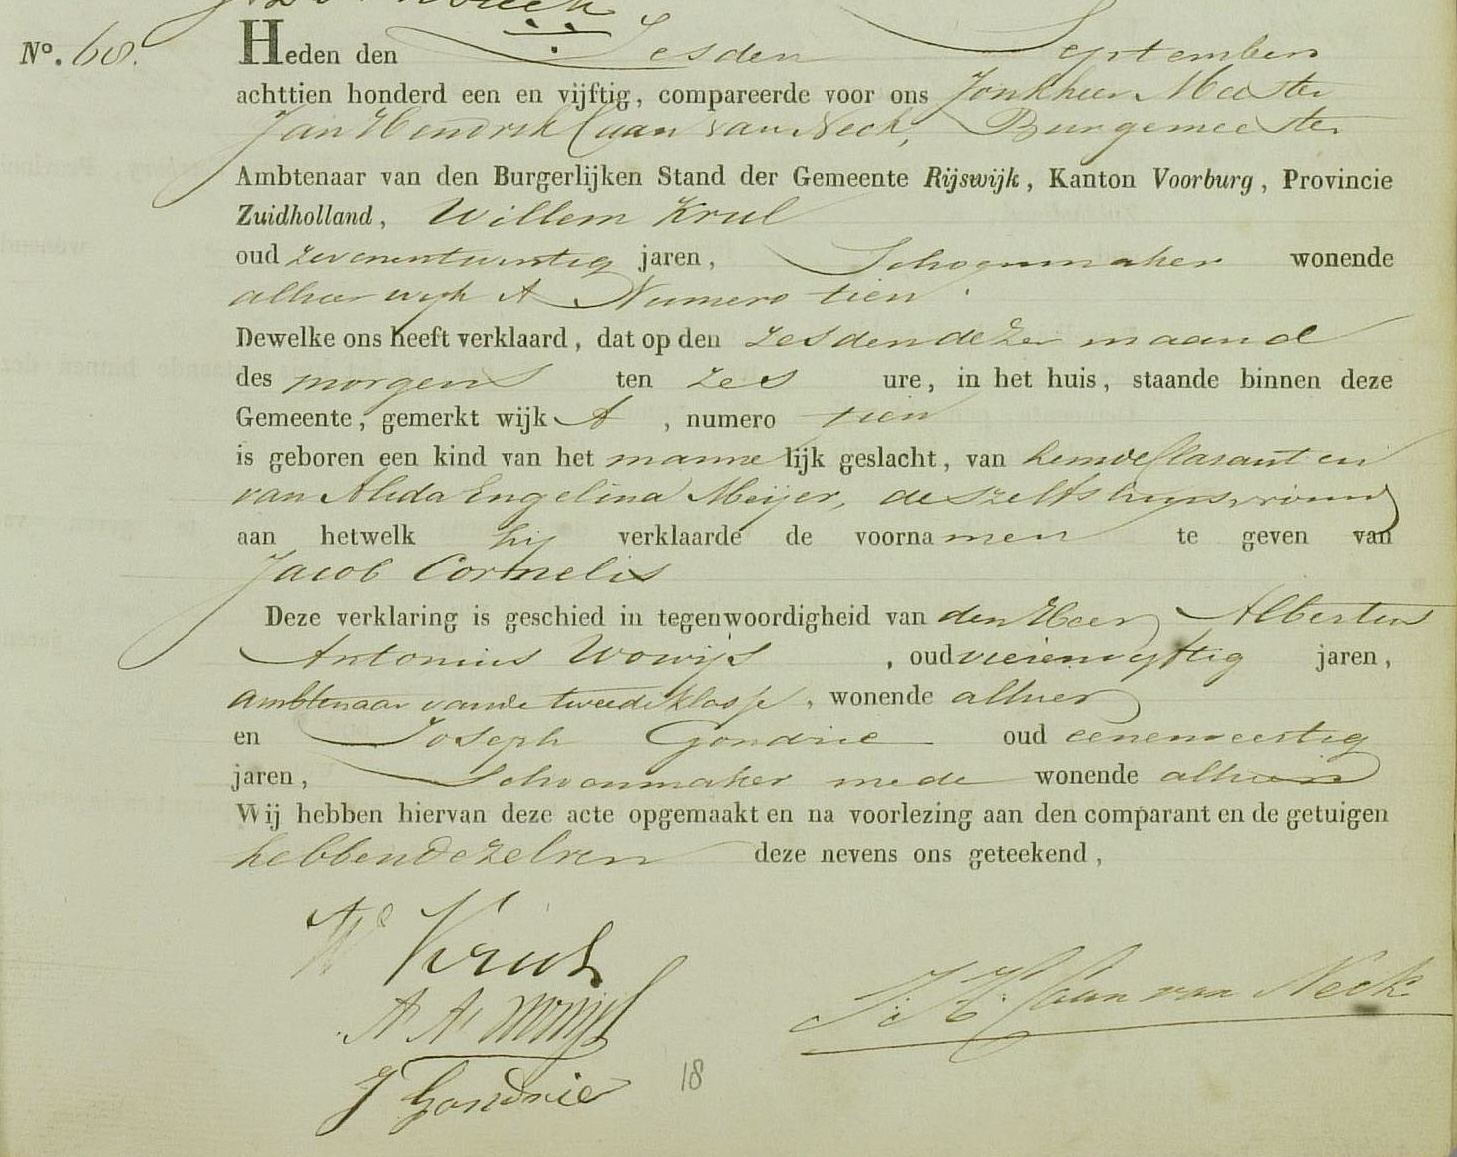 N°. 68.
Heden den Zesden September
achttien honderd een en vijftig, compareerde voor ons Jonkheer Meester
Jan Hendrik Caan van Neck, Burgemeester
Ambtenaar van den Burgerlijken Stand der Gemeente Rijswijk, Kanton Voorburg, Provincie
Zuidholland, Willem Krul
oud zevenentwintig jaren, Schoenmaker wonende
alhier wijk A Numero tien.
Dewelke ons heeft verklaard, dat op den zesden dezer maand
des morgens ten zes ure, in het huis, staande binnen deze
Gemeente, gemerkt wijk A, numero tien
is geboren een kind van het mannelijk geslacht, van hem declarant en
van Alida Engelina Meijer, deszelfs huisvrouw
aan hetwelk hij verklaarde de voornamen te geven van
Jacob Cornelis
Deze verklaring is geschied in tegenwoordigheid van den Heer Albertus
Antonius Wowijs, oud vierenvyftig jaren,
ambtenaar van de tweede klasse, wonende alhier
en Joseph Gondrie oud eenenveertig
jaren, Schoenmaker mede wonende alhier
Wij hebben hiervan deze acte opgemaakt en na voorlezing aan den comparant en de getuigen
hebben dezelven deze nevens ons geteekend,
W Krul
J. H. Caan van Neck
A A Wowijs
J Gondrie
18